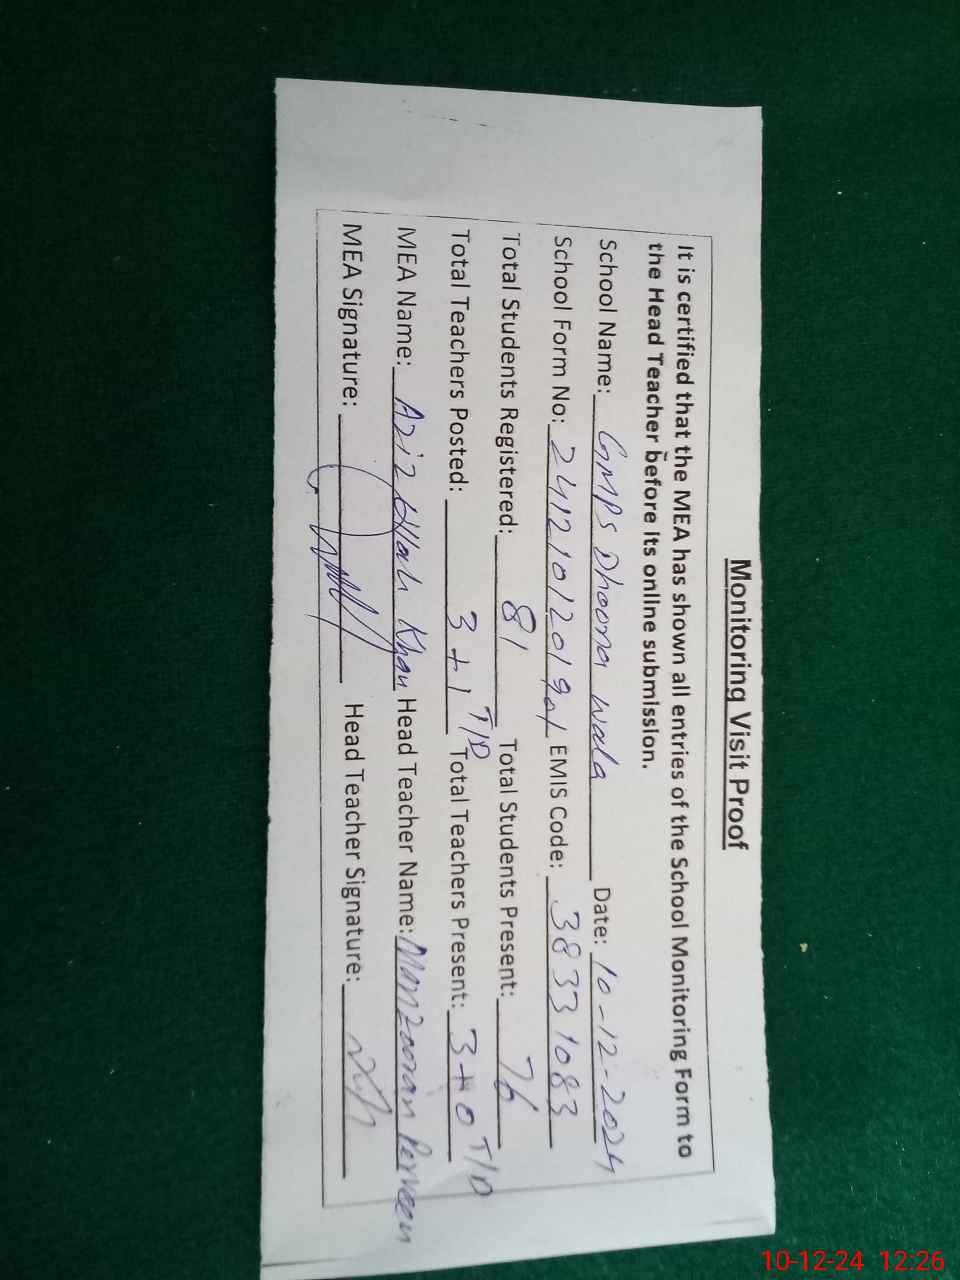 Monitoring Visit Proof
It is certified that the MEA has shown all entries of the School Monitoring Form to
the Head Teacher before its online submission.
School Name: GMPS Dhoona wala Date: 10-12-2024
School Form No: 2412101201901 EMIS Code: 38331083
Total Students Registered: 81 Total Students Present: 76
Total Teachers Posted: 3+1 T/D Total Teachers Present: 3+0 T/D
MEA Name: Aziz Ullah Khan Head Teacher Name: Manzooran Perveen
MEA Signature: Head Teacher Signature:
10-12-24 12:26